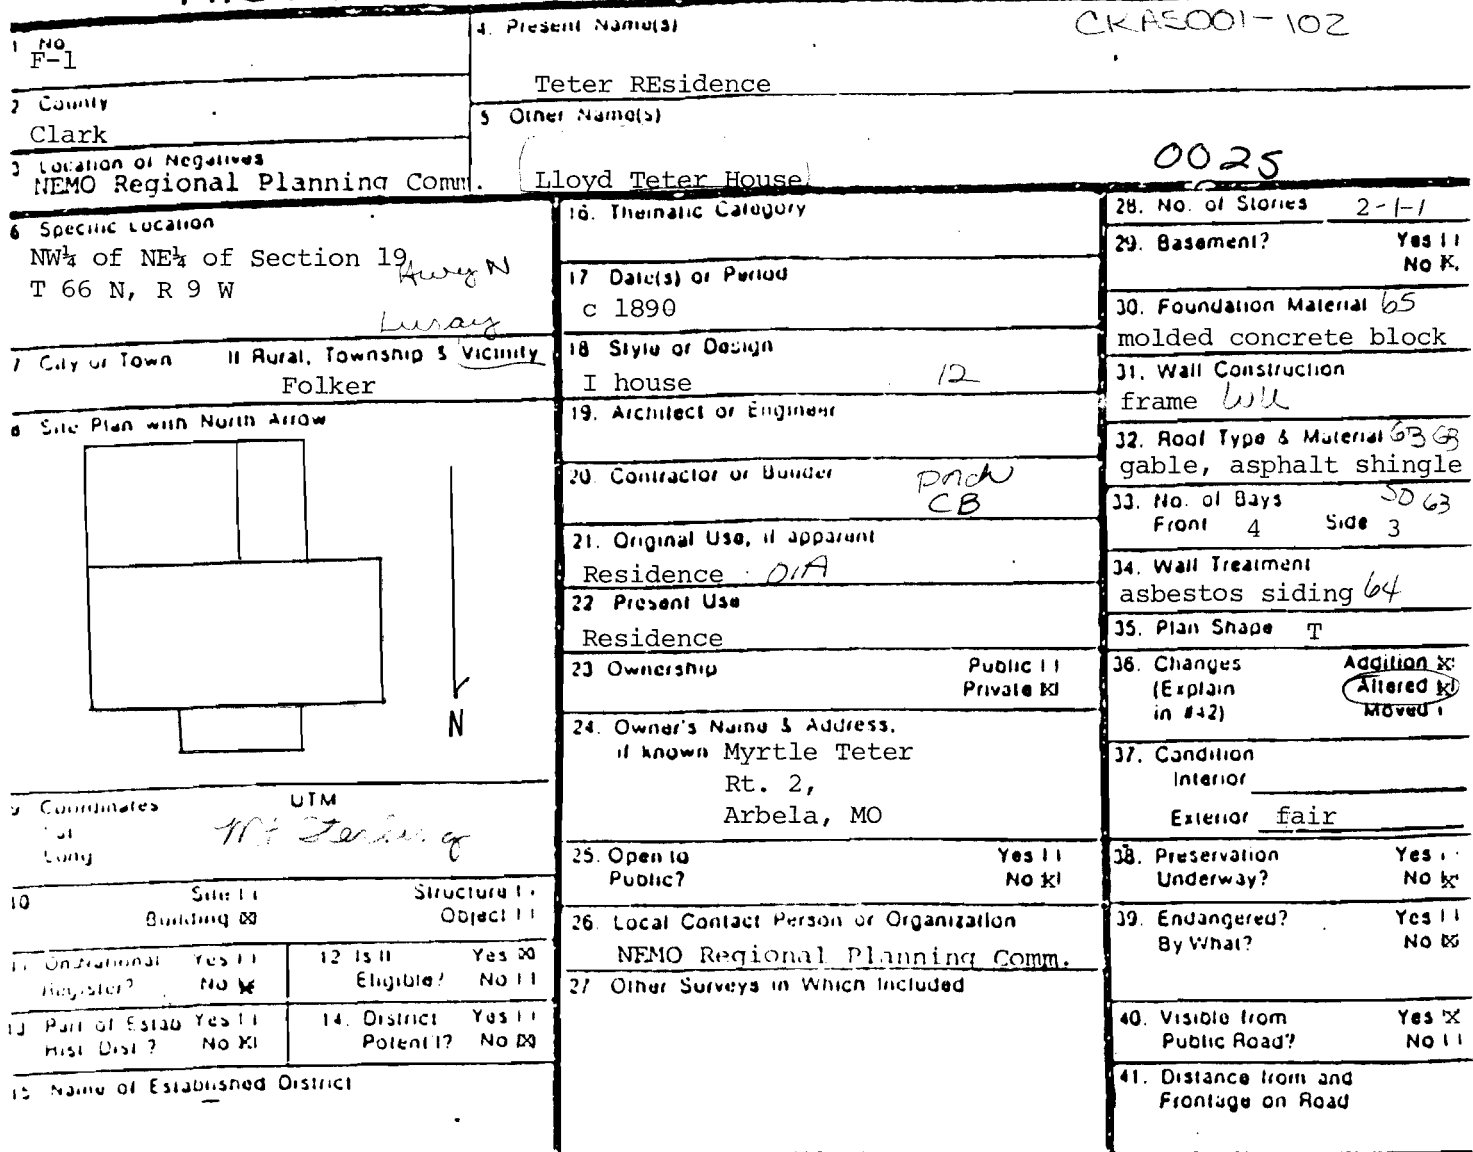 CKAS001-102
1 No
F-1
4. Present Name(s)
Teter REsidence
2 County
Clark
5 Other Name(s)
Lloyd Teter House
0025
3 Location of Negatives
NEMO Regional Planning Comm.
6 Specific Location
NW¼ of NE¼ of Section 19
T 66 N, R 9 W
Hwy N
Luray
7 City or Town If Rural, Township & Vicinity
Folker
8 Site Plan with North Arrow
N
9 Coordinates UTM
Lat
Long
10 Site
Structure
Building ☒
Object
11 On National Register? Yes No ☒
12 Is It Eligible? Yes ☒ No
13 Part of Estab Hist Dist? Yes No ☒
14. District Potent'l? Yes No ☒
15 Name of Established District
16. Thematic Category
17 Date(s) or Period
c 1890
18 Style or Design
I house 12
19. Architect or Engineer
20. Contractor or Builder
porch
CB
21. Original Use, if apparent
Residence 01A
22 Present Use
Residence
23 Ownership Public
Private ☒
24. Owner's Name & Address,
if known Myrtle Teter
Rt. 2,
Arbela, MO
25. Open to Yes
Public? No ☒
26. Local Contact Person or Organization
NEMO Regional Planning Comm.
27 Other Surveys in Which Included
28. No. of Stories 2-1-1
29. Basement? Yes
No X
30. Foundation Material 65
molded concrete block
31. Wall Construction
frame
32. Roof Type & Material 63
gable, asphalt shingle
33. No. of Bays 50 63
Front 4 Side 3
34. Wall Treatment
asbestos siding 64
35. Plan Shape T
36. Changes Addition ☒
(Explain Altered ☒
in #42) Moved
37. Condition
Interior
Exterior fair
38. Preservation Yes
Underway? No ☒
39. Endangered? Yes
By What? No ☒
40. Visible from Yes ☒
Public Road? No
41. Distance from and
Frontage on Road